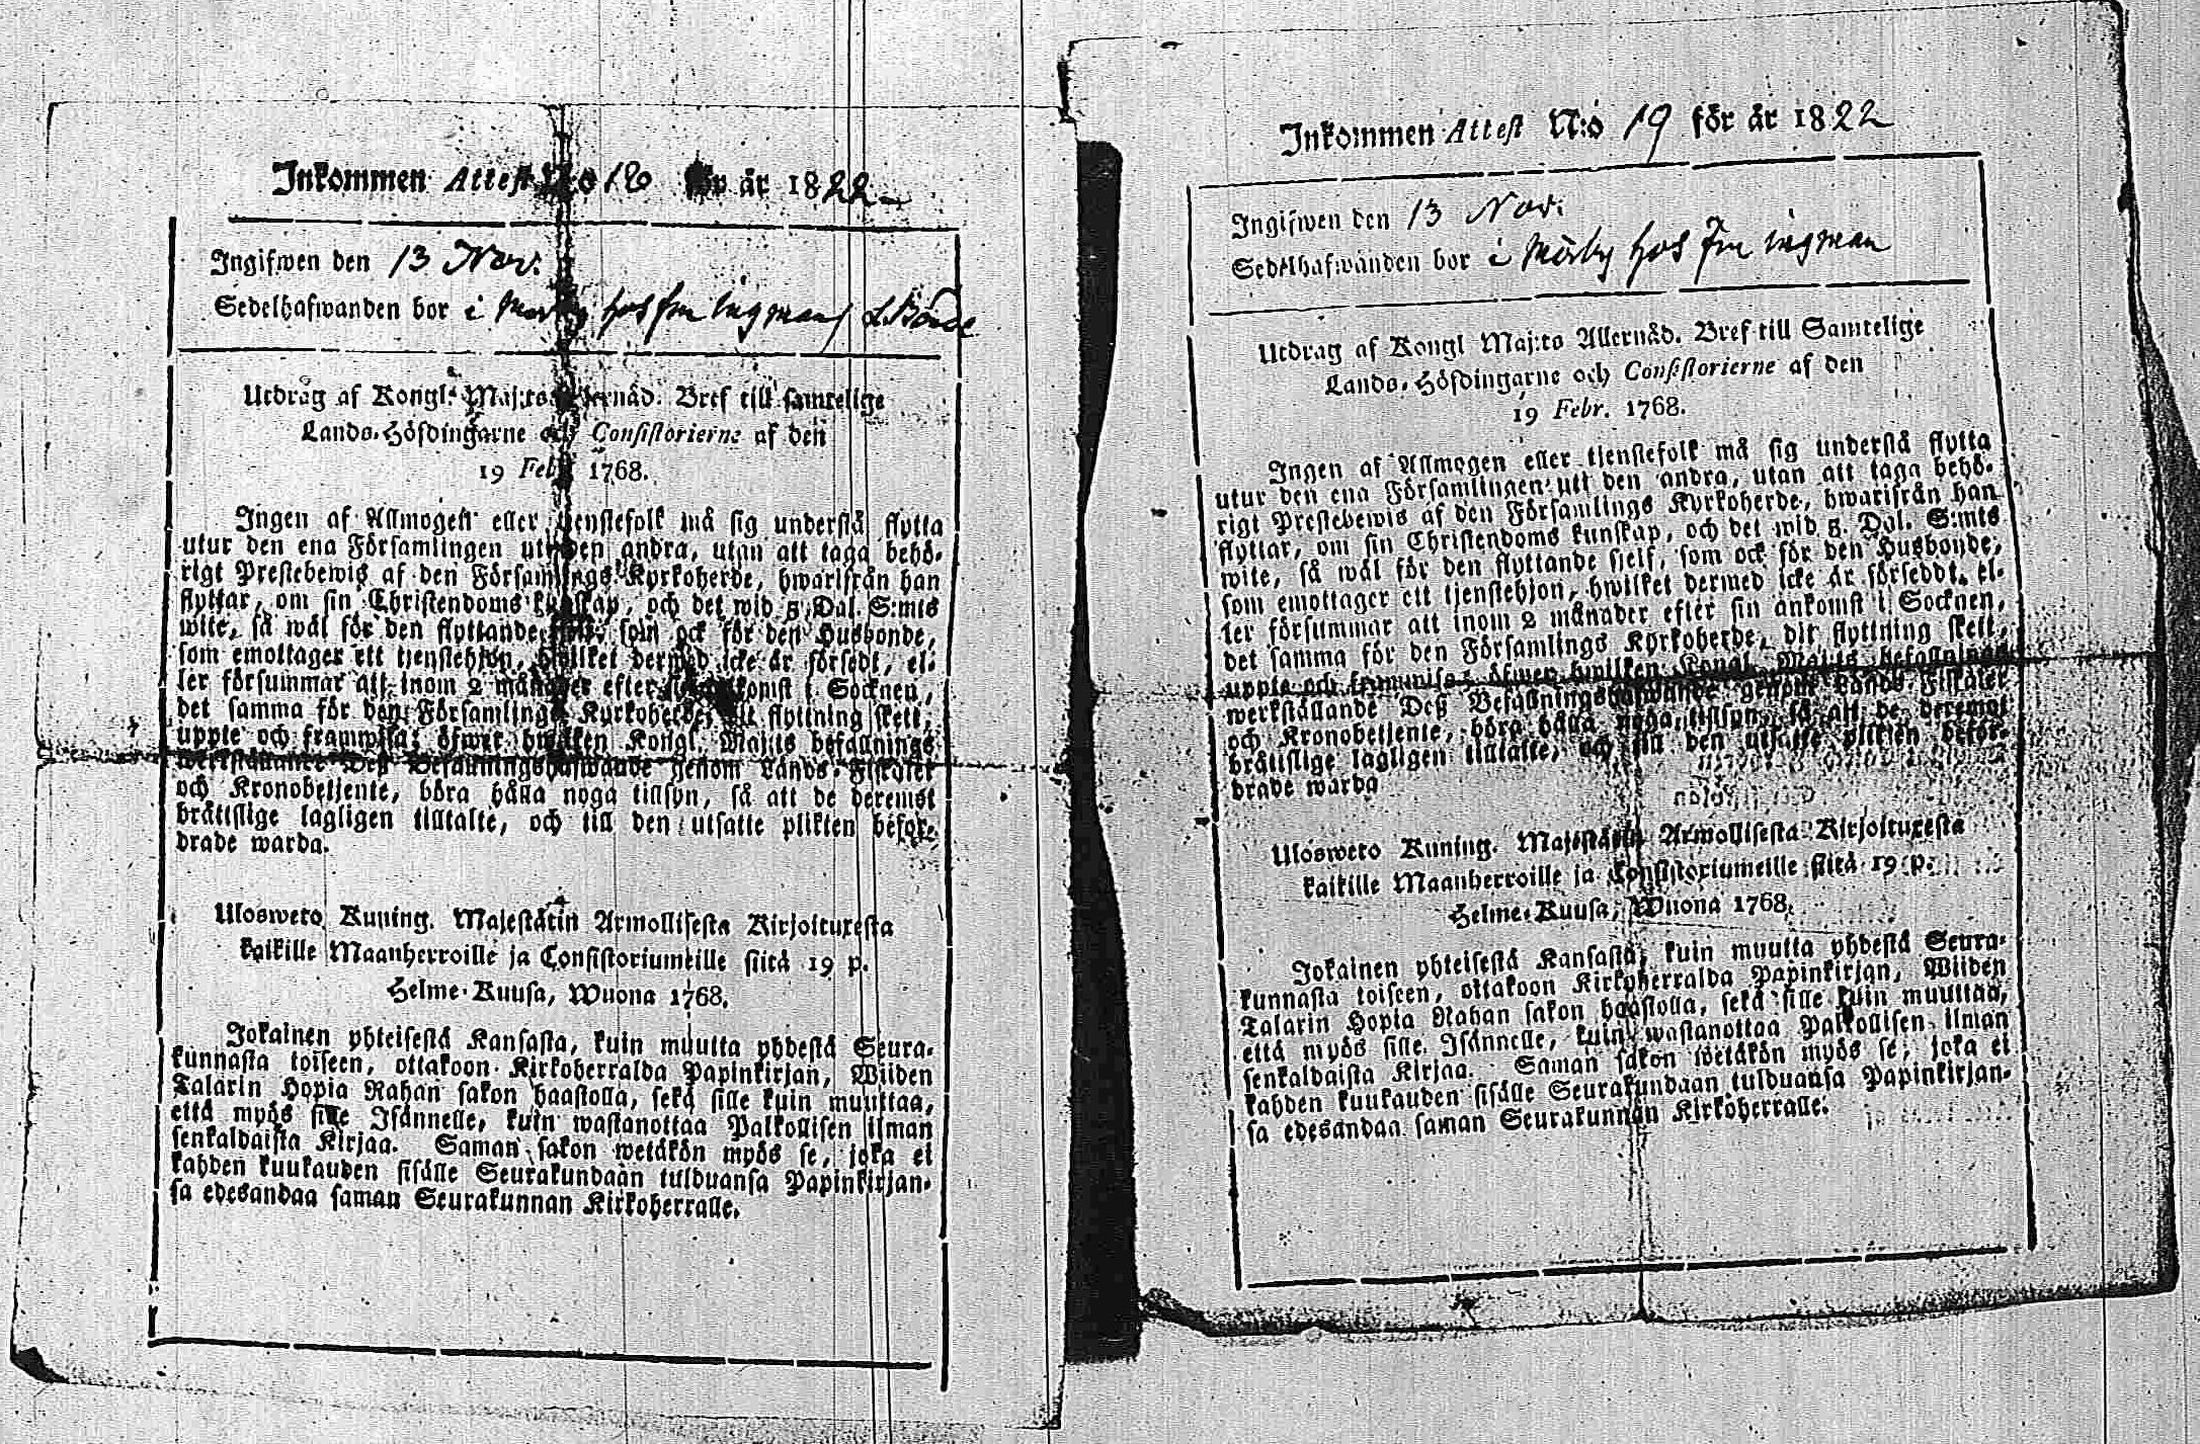 Inkommen Attest N:o 18 för år 1822
Ingifwen den 13 Nov.
Sedelhafwanden bor i
Utdrag af Kongl. Maj:ts Allernåd. Bref till samtelige
Lands-Höfdingarne och Consistorierne af den
19 Febr. 1768.
Ingen af Allmogen eller tjenstefolk må sig understå flytta
utur den ena Församlingen uti den andra, utan att taga behö-
rigt Prestebewis af den Församlings Kyrkoherde, hwarifrån han
flyttar, om sin Christendoms kunskap, och det wid 5 Dal. S:mts
wite, så wäl för den flyttande sielf, som ock för den Husbonde,
som emottager ett tjenstehjon, hwilket dermed icke är försedt, el-
ler försummar att inom 2 månader efter sin ankomst i Socknen,
det samma för den Församlings Kyrkoherde, dit flyttning skett,
uppte och framwisa; öfwer hwilken Kongl. Maj:ts befallnings
werkställande Deß Befallningshafwande genom Lands-Fiskaler
och Kronobetjente, böra hålla noga tillsyn, så att de deremot
bråttslige lagligen tilltalte, och till den utsatte plikten befor-
drade warda.
Ulosweto Kuning. Majestätin Armollisesta Kirjoituxesta
kaikille Maanherroille ja Consistoriumeille siitä 19 p.
Helme-Kuusa, Wuona 1768.
Jokainen yhteisestä Kansasta, kuin muutta yhdestä Seura-
kunnasta toiseen, ottakoon Kirkoherralda Papinkirjan, Wiiden
Talarin Hopia Rahan sakon haastolla, sekä sille kuin muuttaa,
että myös sille Isännelle, kuin wastanottaa Palkollisen ilman
senkaldaista Kirjaa. Saman sakon wetäkön myös se, joka ei
kahden kuukauden sisälle Seurakundaan tulduansa Papinkirjan-
sa edesandaa saman Seurakunnan Kirkoherralle.
Inkommen Attest N:o 19 för år 1822
Ingifwen den 13 Nov.
Sedelhafwanden bor i Mörby hos Ingman
Utdrag af Kongl Maj:ts Allernåd. Bref till Samtelige
Lands-Höfdingarne och Consistorierne af den
19 Febr. 1768.
Ingen af Allmogen eller tjenstefolk må sig understå flytta
utur den ena Församlingen uti den andra, utan att taga behö-
rigt Prestebewis af den Församlings Kyrkoherde, hwarifrån han
flyttar, om sin Christendoms kunskap, och det wid 5 Dal. S:mts
wite, så wäl för den flyttande sielf, som ock för den Husbonde,
som emottager ett tjenstehjon, hwilket dermed icke är förseddt, el-
ler försummar att inom 2 månader efter sin ankomst i Socknen,
det samma för den Församlings Kyrkoherde, dit flyttning skett,
uppte och framwisa; öfwer hwilken Kongl. Maj:ts befallnings
werkställande Deß Befallningshafwande genom Lands-Fiskaler
och Kronobetjente, böra hålla noga tillsyn, så att de deremot
bråttslige lagligen tilltalte, och till den utsatte plikten befor-
drade warda
Ulosweto Kuning. Majestätin Armollisesta Kirjoituxesta
kaikille Maanherroille ja Consistoriumeille siitä 19 p.
Helme-Kuusa, Wuona 1768.
Jokainen yhteisestä Kansasta, kuin muutta yhdestä Seura-
kunnasta toiseen, ottakoon Kirkoherralda Papinkirjan, Wiiden
Talarin Hopia Rahan sakon haastolla, sekä sille kuin muuttaa,
että myös sille Isännelle, kuin wastanottaa Palkollisen ilman
senkaldaista Kirjaa. Saman sakon wetäkön myös se, joka ei
kahden kuukauden sisälle Seurakundaan tulduansa Papinkirjan-
sa edesandaa saman Seurakunnan Kirkoherralle.